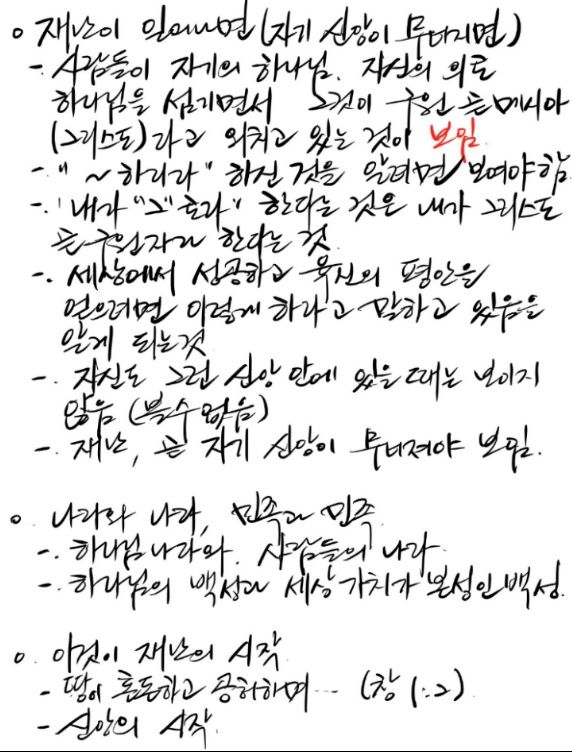 o 재난이 일어나면 (자기 신앙이 무너지면)
-. 사람들이 자기의 하나님. 자신의 의로
하나님을 섬기면서 그것이 구원 곧 메시아
(그리스도)라고 외치고 있는 것이 보임
-. "~하리라" 하신 것을 알려면 보여야 함
-. '내가 "그"로라' 한다는 것은 내가 그리스도
곧 구원자가 한다는 것
-. 세상에서 성공하고 육신의 평안을
얻으려면 이렇게 하라고 말하고 있음을
알게 되는것
-. 자신도 그런 신앙 안에 있을 때는 보이지
않음 (볼 수 없음)
-. 재난, 곧 자기 신앙이 무너져야 보임.
o. 나라와 나라, 민족과 민족
-. 하나님 나라와. 사람들의 나라
-. 하나님의 백성과 세상 가치가 본성인 백성.
o. 이것이 재난의 시작
- 땅이 혼돈하고 공허하며… (창 1:2)
- 신앙의 시작.